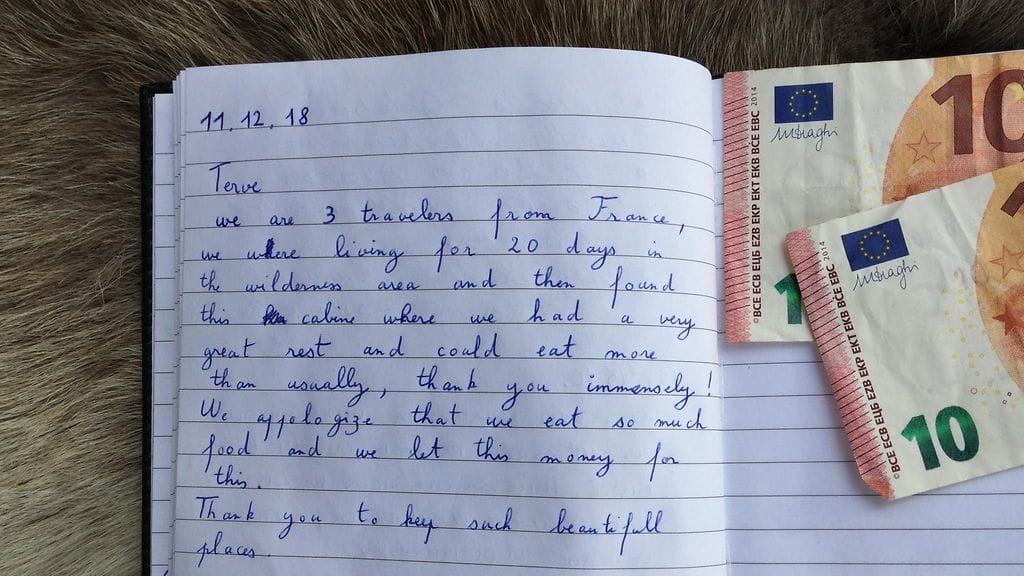 11.12.18
Terve
we are 3 travelers from France,
we where living for 20 days in
the wilderness area and then found
this cabine where we had a very
great rest and could eat more
than usually, thank you immensely!
We appologize that we eat so much
food and we let this money for
this.
Thank you to kep such beautifull
places.
©BCE ECB ЕЦБ EZB EKP EKT EKB BCE EBC 2014
10
10
©BCE ECB ЕЦБ EZB EKP EKT EKB BCE EBC 2014
10